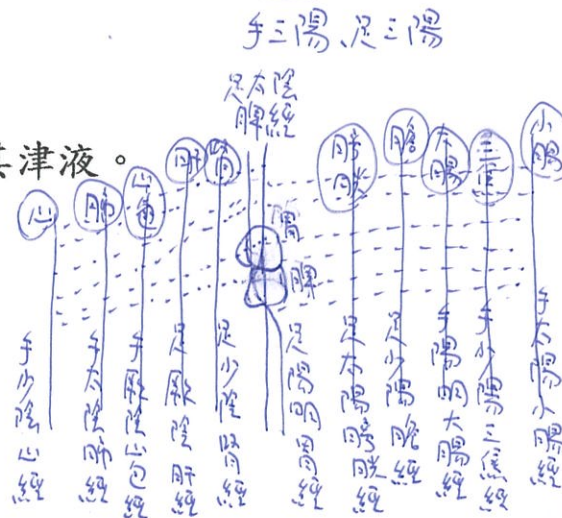 手三陽、足三陽
足太陰
脾經
其津液。
心
肺
心包
肝
腎
膀胱
膽
大腸
三焦
小腸
胃
脾
手少陰心經
手太陰肺經
手厥陰心包經
足厥陰肝經
足少陰腎經
足陽明胃經
足太陽膀胱經
足少陽膽經
手陽明大腸經
手少陽三焦經
手太陽小腸經